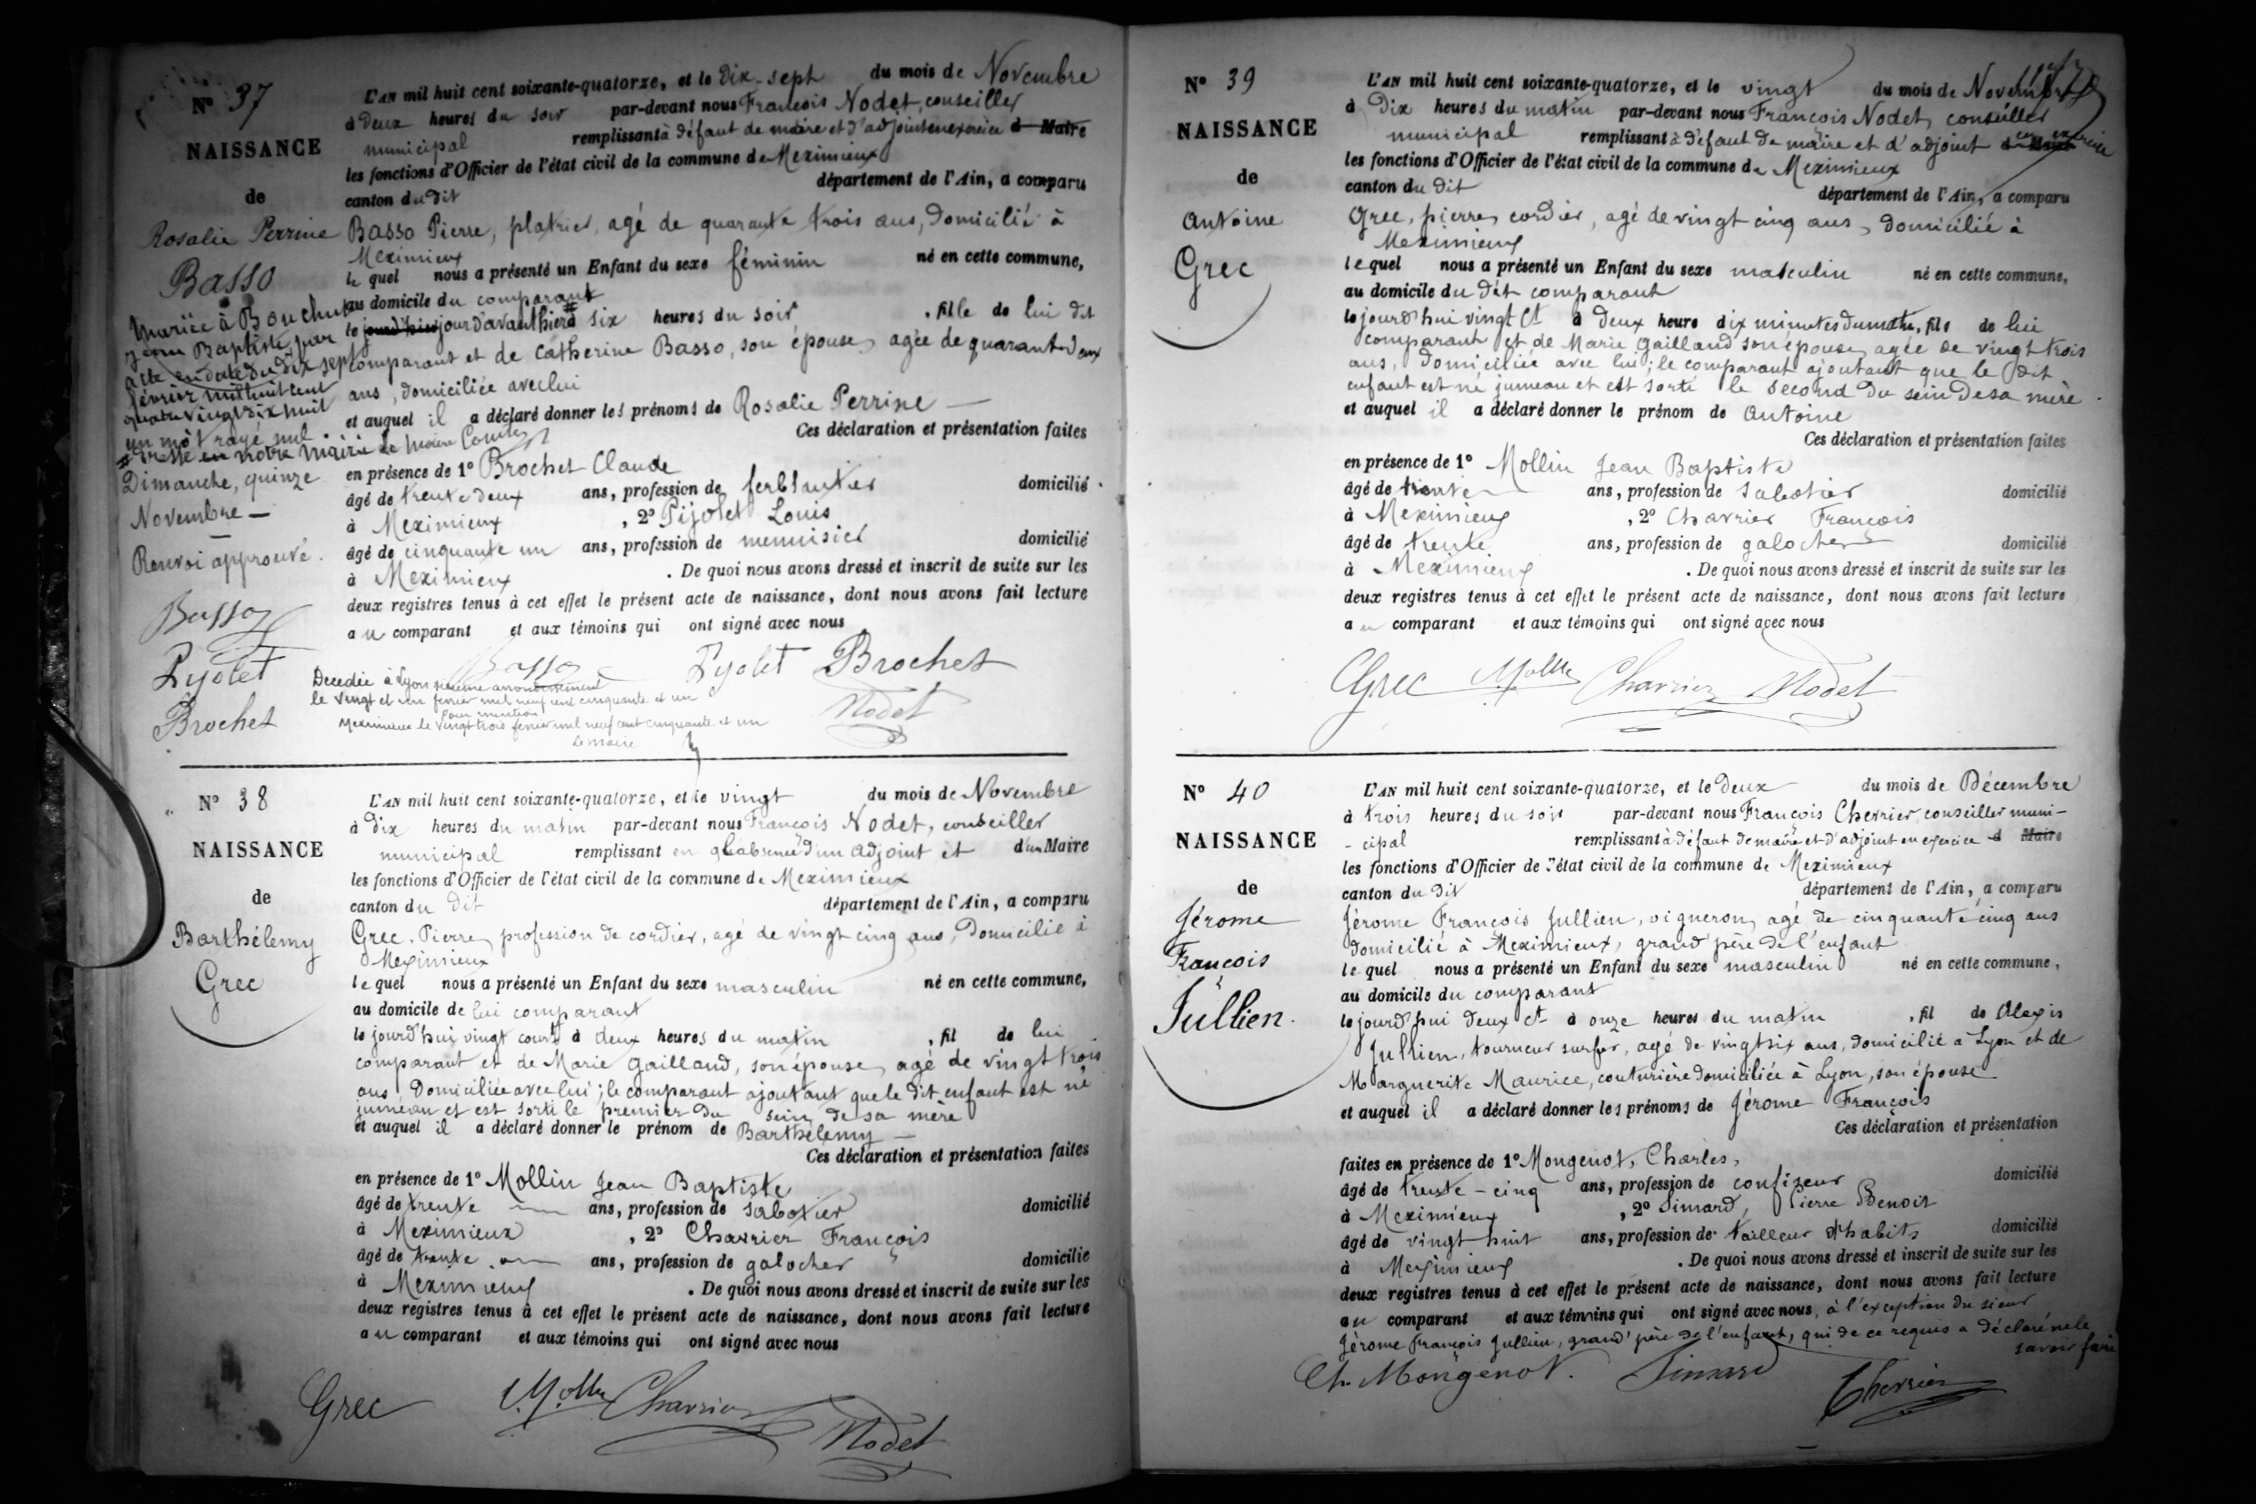 N° 37
NAISSANCE
de
Rosalie Perrine
Basso
mariée à Bouchu
Jean Baptiste par
acte en date du dix sept
février mil huit cent
quatre vingt dix huit
un mot rayé nul.
# Dimanche, quinze
Novembre —
Renvoi approuvé.
Basso
Pijolet
Brochet
L'AN mil huit cent soixante-quatorze, et le Dix-sept du mois de Novembre
à deux heures du soir par-devant nous François Nodet, conseiller
municipal remplissant à défaut de maire et d'adjoint en exercice d Maire
les fonctions d'Officier de l'état civil de la commune de Meximieux
canton du dit département de l'Ain, a comparu
Basso Pierre, platrier, agé de quarante trois ans, domicilié à
Meximieux
le quel nous a présenté un Enfant du sexe féminin né en cette commune,
au domicile du comparant
le jour d'hier jour d'avant hier # à six heures du soir, fille de lui dit
comparant et de Catherine Basso, son épouse, agée de quarante deux
ans, domiciliée avec lui
et auquel il a déclaré donner les prénoms de Rosalie Perrine —
Ces déclaration et présentation faites
en présence de 1° Brochet Claude
âgé de trente deux ans, profession de ferblantier domicilié
à Meximieux, 2° Pijolet Louis
âgé de cinquante un ans, profession de menuisier domicilié
à Meximieux. De quoi nous avons dressé et inscrit de suite sur les
deux registres tenus à cet effet le présent acte de naissance, dont nous avons fait lecture
au comparant et aux témoins qui ont signé avec nous
Basso Pijolet Brochet
Nodet
Decedée à Lyon arrondissement
le vingt et un fevrier mil neuf cent cinquante et un
Pour mention
Meximieux le vingt trois fevrier mil neuf cent cinquante et un
Le maire
N° 38
NAISSANCE
de
Barthélemy
Grec
L'AN mil huit cent soixante-quatorze, et le vingt du mois de Novembre
à dix heures du matin par-devant nous François Nodet, conseiller
municipal remplissant en l'absence d'un adjoint et d'un Maire
les fonctions d'Officier de l'état civil de la commune de Meximieux
canton du dit département de l'Ain, a comparu
Grec, Pierre, profession de cordier, agé de vingt cinq ans, Domicilié à
Meximieux
le quel nous a présenté un Enfant du sexe masculin né en cette commune,
au domicile de lui comparant
le jourd'hui vingt court à deux heures du matin, fil de lui
comparant et de Marie Gailland, son épouse, agé de vingt trois
ans Domiciliée avec lui; le comparant ajoutant que le dit enfant est né
jumeau et est sorti le premier du sein de sa mère
et auquel il a déclaré donner le prénom de Barthélemy —
Ces déclaration et présentation faites
en présence de 1° Mollin Jean Baptiste
âgé de trente ans, profession de sabotier domicilié
à Meximieux, 2° Charrier François
âgé de trente ans, profession de galocher domicilié
à Meximieux. De quoi nous avons dressé et inscrit de suite sur les
deux registres tenus à cet effet le présent acte de naissance, dont nous avons fait lecture
au comparant et aux témoins qui ont signé avec nous
Grec Mollin Charrier Nodet
N° 39
NAISSANCE
de
Antoine
Grec
L'AN mil huit cent soixante-quatorze, et le vingt du mois de Novembre
à Dix heures du matin par-devant nous François Nodet, conseiller
municipal remplissant à défaut de maire et d'adjoint en exercice
les fonctions d'Officier de l'état civil de la commune de Meximieux
canton du dit département de l'Ain, a comparu
Grec, pierre, cordier, agé de vingt cinq ans, domicilié à
Meximieux
le quel nous a présenté un Enfant du sexe masculin né en cette commune,
au domicile du dit comparant
le jourd'hui vingt Ct à deux heure dix minutes du matin, fils de lui
comparant et de Marie Gailland son épouse, agée de vingt trois
ans, domiciliée avec lui; le comparant ajoutant que le dit
enfant est né jumeau et est sorti le second du sein de sa mère.
et auquel il a déclaré donner le prénom de Antoine
Ces déclaration et présentation faites
en présence de 1° Mollin Jean Baptiste
âgé de trente ans, profession de sabotier domicilié
à Meximieux, 2° Charrier François
âgé de trente ans, profession de galocher domicilié
à Meximieux. De quoi nous avons dressé et inscrit de suite sur les
deux registres tenus à cet effet le présent acte de naissance, dont nous avons fait lecture
au comparant et aux témoins qui ont signé avec nous
Grec Mollin Charrier Nodet
N° 40
NAISSANCE
de
Jérome
François
Jullien.
L'AN mil huit cent soixante-quatorze, et le deux du mois de Décembre
à trois heures du soir par-devant nous François Cherrier, conseiller muni-
- cipal remplissant à défaut de maire et d'adjoint en exercice d Maire
les fonctions d'Officier de l'état civil de la commune de Meximieux
canton du dit département de l'Ain, a comparu
Jérome François Jullien, vigneron, agé de cinquante cinq ans
domicilié à Meximieux, grand'père de l'enfant
le quel nous a présenté un Enfant du sexe masculin né en cette commune,
au domicile du comparant
le jourd'hui deux Ct à onze heures du matin, fil de Alexis
Jullien, tourneur sur fer, agé de vingt six ans, domicilié à Lyon et de
Marguerite Maurice, couturière domiciliée à Lyon, son épouse
et auquel il a déclaré donner les prénoms de Jérome François
Ces déclaration et présentation
faites en présence de 1° Mongenot, Charles,
âgé de trente-cinq ans, profession de confiseur domicilié
à Meximieux, 2° Simard, Pierre Benoit
âgé de vingt huit ans, profession de tailleur d'habits domicilié
à Meximieux. De quoi nous avons dressé et inscrit de suite sur les
deux registres tenus à cet effet le présent acte de naissance, dont nous avons fait lecture
au comparant et aux témoins qui ont signé avec nous, à l'exception du sieur
Jérome François Jullien, grand'père de l'enfant, qui de ce requis a déclaré ne le
savoir faire
Ch. Mongenot. Simard Cherrier